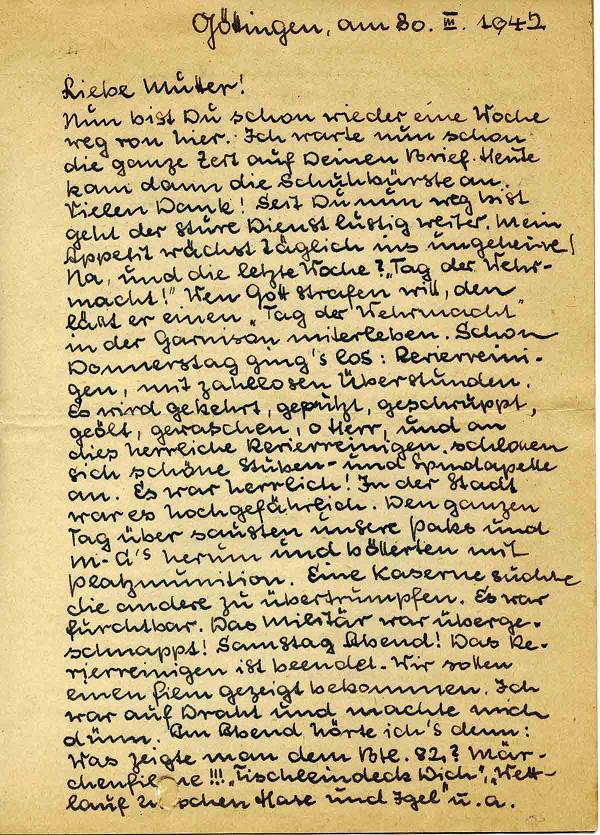 Göttingen, am 30. III. 1942
Liebe Mutter!
Nun bist Du schon wieder eine Woche
weg von hier. Ich warte nun schon
die ganze Zeit auf Deinen Brief. Heute
kam dann die Schuhbürste an.
Vielen Dank! Seit Du nun weg bist
geht der sture Dienst lustig weiter. Mein
Appetit wächst täglich ins ungeheure!
Na, und die letzte Woche? „Tag der Wehr-
macht!" Wen Gott strafen will, den
läßt er einen „Tag der Wehrmacht"
in der Garnison miterleben. Schon
Donnerstag ging's los: Revierreini-
gen, mit zahllosen Überstunden.
Es wird gekehrt, geputzt, geschruppt,
geölt, gewaschen, o Herr, und an
dies herrliche Revierreinigen schlossen
sich schöne Stuben- und Spindapelle
an. Es war herrlich! In der Stadt
war es hochgefährlich. Den ganzen
Tag über sausten unsere Paks und
M-G's herum und böllerten mit
Platzmunition. Eine Kaserne suchte
die andere zu übertrumpfen. Es war
furchtbar. Das Militär war überge-
schnappt! Samstag Abend! Das Re-
vierreinigen ist beendet. Wir sollen
einen Film gezeigt bekommen. Ich
war auf Draht und machte mich
dünn. Am Abend hörte ich's denn:
Was zeigte man dem Btl. 82.? Mär-
chenfilme!!! „Tischleindeck Dich", „Wett-
lauf zwischen Hase und Igel" u. a.